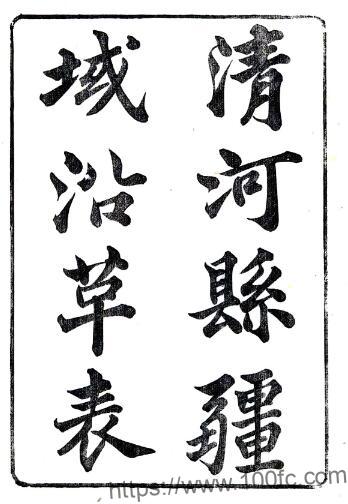 清河縣疆
域沿草表
https://www.100fc.com